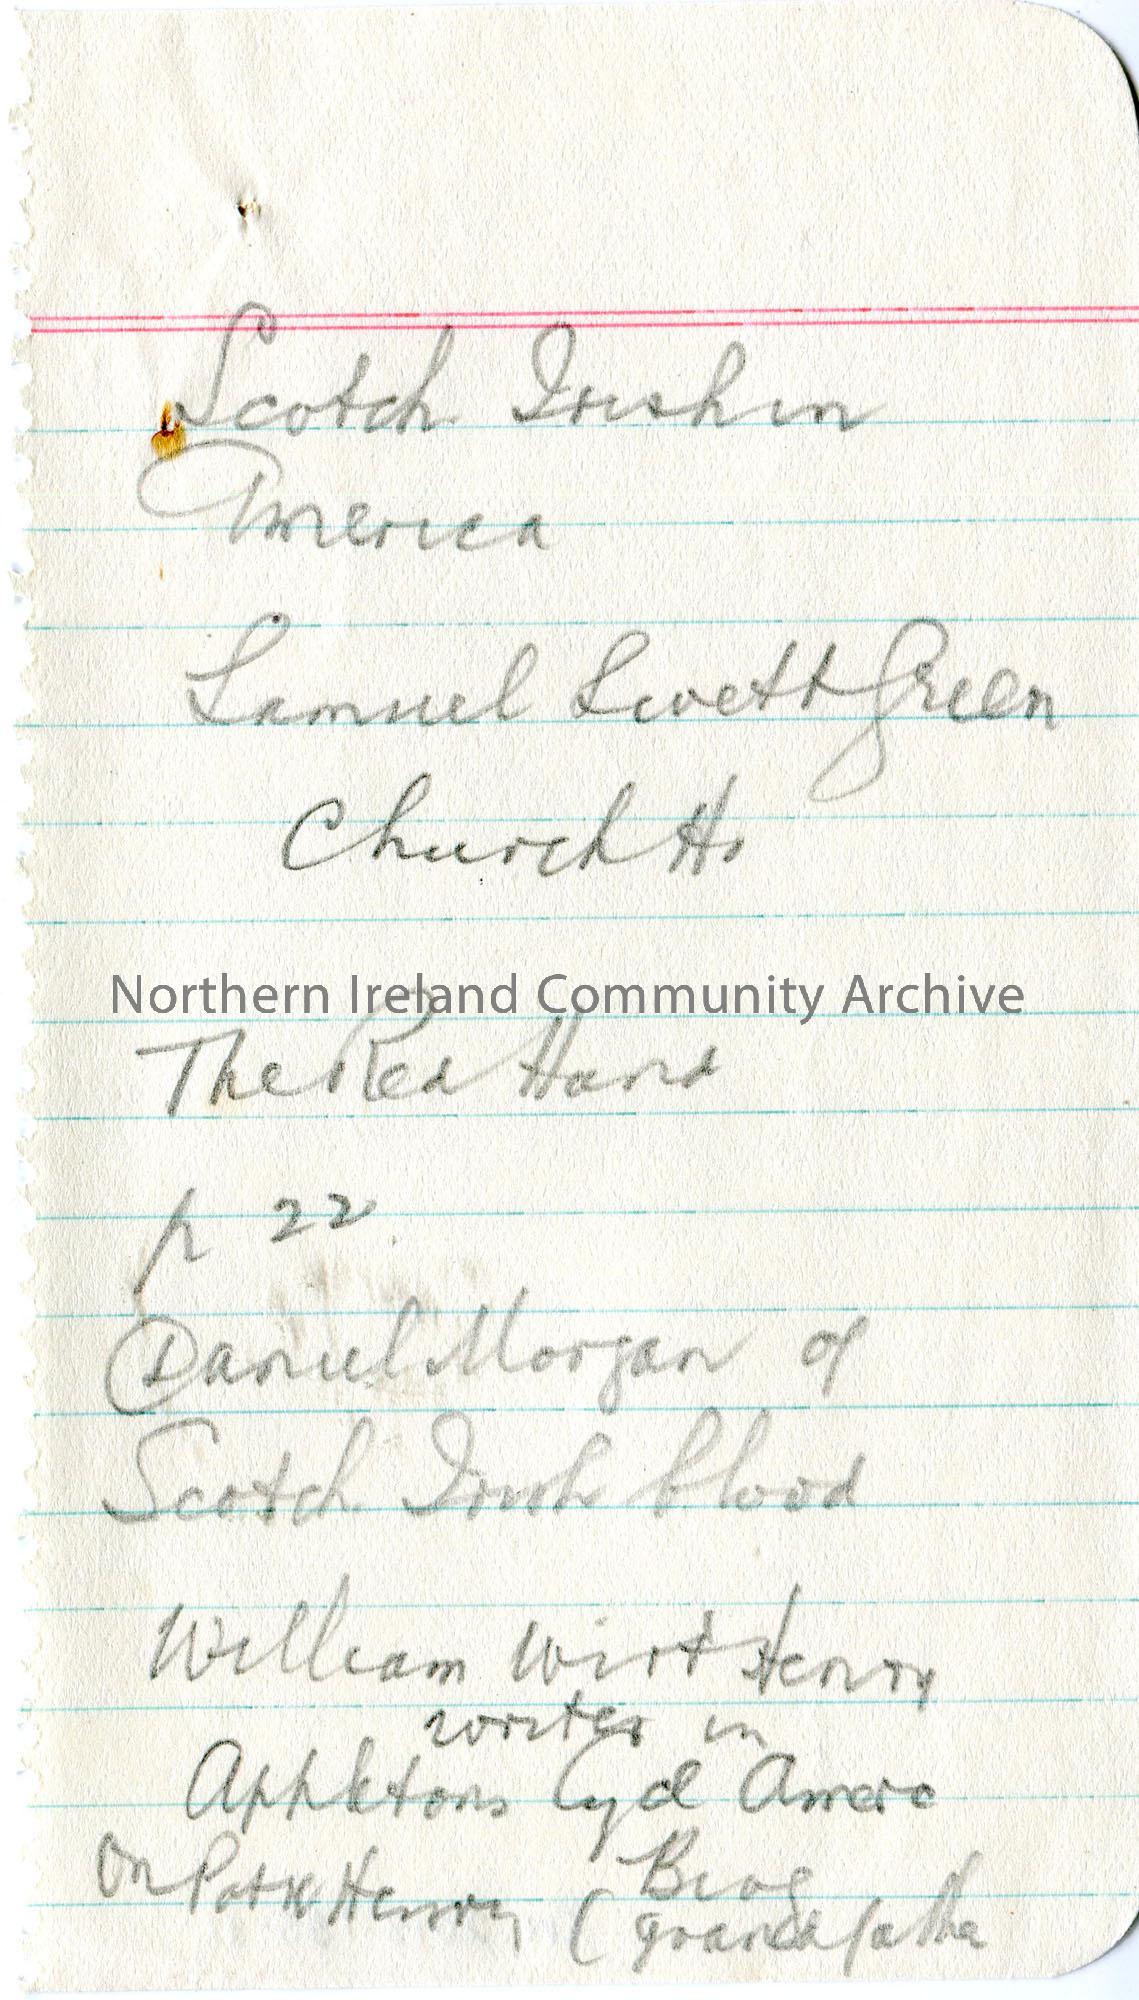 Scotch Irish in
America
Samuel Swett Green
Church Ho
Northern Ireland Community Archive
The Red Hand
p 22
Daniel Morgan of
Scotch Irish blood
William Wirt Henry
writes in
Appletons Cycl Amerc
Biog
On Patk Henry (grandfather